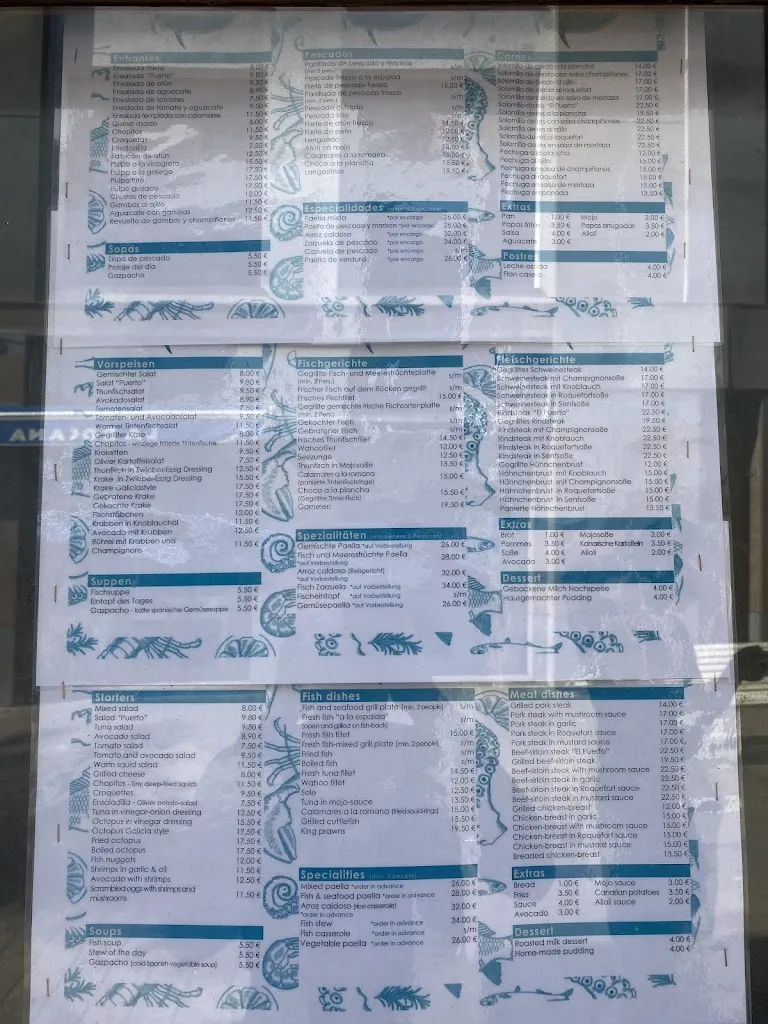 Entrantes
Ensalada mixta 8.00 €
Ensalada "Puerto" 9.80 €
Ensalada de atún 9.50 €
Ensalada de aguacate 8.90 €
Ensalada de tomates 7.50 €
Ensalada de tomate y aguacate 9.50 €
Ensalada templada con calamares 11.50 €
Queso asado 8.00 €
Chopitos 11.50 €
Croquetas 9.50 €
Ensaladilla 7.50 €
Salpicón de atún 12.50 €
Pulpo a la vinagreta 15.50 €
Pulpo a la gallega 17.50 €
Pulpo frito 17.50 €
Pulpo guisado 17.50 €
Churros de pescado 12.00 €
Gambas al ajillo 11.50 €
Aguacate con gambas 12.50 €
Revuelto de gambas y champiñones 11.50 €
Sopas
Sopa de pescado 5.50 €
Potaje del día 5.50 €
Gazpacho 5.50 €
Pescados
Parrillada de pescado y marisco s/m
(min.2 pers.)
Pescado fresco a la espalda s/m
Filete de pescado fresco 15.00 €
Parrillada de pescado fresco s/m
(min. 2 pers.)
Pescado frito s/m
Filete de atún fresco 14.50 €
Lenguado 12.50 €
Atún en mojo
Calamares a la romana 15.00 €
Choco a la plancha 15.50 €
Langostinos 19.50 €
Especialidades
Paella mixta *por encargo 26.00 €
Paella de pescado y marisco *por encargo 28.00 €
Arroz caldoso *por encargo 32.00 €
Zarzuela de pescado *por encargo 34.00 €
Cazuela de pescado *por encargo s/m
Paella de verdura *por encargo 26.00 €
Carnes
Solomillo de cerdo a la plancha 14.00 €
Solomillo de cerdo con salsa champiñones 17.00 €
Solomillo de cerdo al ajillo 17.00 €
Solomillo de cerdo al roquefort 17.00 €
Solomillo de cerdo en salsa de mostaza 17.00 €
Solomillo de res "El Puerto" 22.50 €
Solomillo de res a la plancha 19.50 €
Solomillo de res con salsa champiñones 22.50 €
Solomillo de res al ajillo 22.50 €
Solomillo de res al roquefort 22.50 €
Solomillo de res en salsa de mostaza 22.50 €
Pechuga a la plancha 12.00 €
Pechuga al ajillo 15.00 €
Pechuga en salsa de champiñones 15.00 €
Pechuga al roquefort 15.00 €
Pechuga en salsa de mostaza 15.00 €
Pechuga empanada 13.50 €
Extras
Pan 1.00 € Mojo 3.00 €
Papas fritas 3.50 € Papas arrugadas 3.50 €
Salsa 4.00 € Alioli 2.00 €
Aguacate 3.00 €
Postres
Leche asada 4.00 €
Flan casero 4.00 €
Vorspeisen
Gemischter Salat 8.00 €
Salat "Puerto" 9.80 €
Thunfischsalat 9.50 €
Avokadosalat 8.90 €
Tomatensalat 7.50 €
Tomaten- und Avocadosalat 9.50 €
Warmer Tintenfischsalat 11.50 €
Gegrillter Käse 8.00 €
Chopitos - winzige frittierte Tintenfische 11.50 €
Kroketten 9.50 €
Olivier Kartoffelsalat 7.50 €
Thunfisch in Zwiebel-Essig Dressing 12.50 €
Krake in Zwiebel-Essig Dressing 15.50 €
Krake Galiciastyle 17.50 €
Gebratene Krake 17.50 €
Gekochte Krake 17.50 €
Fischstäbchen 12.00 €
Krabben in Knoblauchöl 11.50 €
Avocado mit Krabben 12.50 €
Rührei mit Krabben und 11.50 €
Champignons
Suppen
Fischsuppe 5.50 €
Eintopf des Tages 5.50 €
Gazpacho - kalte spanische Gemüsesuppe 5.50 €
Fischgerichte
Gegrillte Fisch- und Meeresfrüchteplatte s/m
(min. 2 Pers.)
Frischer Fisch auf dem Rücken gegrillt s/m
Frisches Fischfilet 15.00 €
Gegrillte gemischte frische Fischsortenplatte s/m
(min. 2 Pers.)
Gekochter Fisch s/m
Gebratener Fisch s/m
Frisches Thunfischfilet 14.50 €
Wahoofilet 12.00 €
Seezunge 12.50 €
Thunfisch in Mojosoße 13.50 €
Calamares a la romana 15.00 €
(panierte Tintenfischringe)
Choco a la plancha 15.50 €
(Gegrillter Tintenfisch)
Garnelen 19.50 €
Spezialitäten (mindestens 2 Personen)
Gemischte Paella *auf Vorbestellung 26.00 €
Fisch und Meeresfrüchte Paella 28.00 €
*auf Vorbestellung
Arroz caldoso (Reisgericht) 32.00 €
*auf Vorbestellung
Fisch Zarzuela *auf Vorbestellung 34.00 €
Fischeintopf *auf Vorbestellung s/m
Gemüsepaella *auf Vorbestellung 26.00 €
Fleischgerichte
Gegrilltes Schweinesteak 14.00 €
Schweinesteak mit Champignonsoße 17.00 €
Schweinesteak mit Knoblauch 17.00 €
Schweinesteak in Roquefortsoße 17.00 €
Schweinesteak in Senfsoße 17.00 €
Rindsteak "El Puerto" 22.50 €
Gegrilltes Rindsteak 19.50 €
Rindsteak mit Champignonsoße 22.50 €
Rindsteak mit Knoblauch 22.50 €
Rindsteak in Roquefortsoße 22.50 €
Rindsteak in Senfsoße 22.50 €
Gegrillte Hühnchenbrust 12.00 €
Hähnchenbrust mit Knoblauch 15.00 €
Hähnchenbrust mit Champignonsoße 15.00 €
Hähnchenbrust in Roquefortsoße 15.00 €
Hähnchenbrust in Senfsoße 15.00 €
Panierte Hähnchenbrust 13.50 €
Extras
Brot 1.00 € Mojosoße 3.00 €
Pommes 3.50 € Kanarische Kartoffeln 3.50 €
Soße 4.00 € Alioli 2.00 €
Avocado 3.00 €
Dessert
Gebackene Milch Nachspeise 4.00 €
Hausgemachter Pudding 4.00 €
Starters
Mixed salad 8.00 €
Salad "Puerto" 9.80 €
Tuna salad 9.50 €
Avocado salad 8.90 €
Tomato salad 7.50 €
Tomato and avocado salad 9.50 €
Warm squid salad 11.50 €
Grilled cheese 8.00 €
Chopitos - tiny deep-fried squids 11.50 €
Croquettes 9.50 €
Ensaladilla - Olivier potato-salad 7.50 €
Tuna in vinegar-onion dressing 12.50 €
Octopus in vinegar dressing 15.50 €
Octopus Galicia style 17.50 €
Fried octopus 17.50 €
Boiled octopus 17.50 €
Fish nuggets 12.00 €
Shrimps in garlic & oil 11.50 €
Avocado with shrimps 12.50 €
Scrambled eggs with shrimps and 11.50 €
mushrooms
Soups
Fish soup 5.50 €
Stew of the day 5.50 €
Gazpacho (cold Spanish vegetable soup) 5.50 €
Fish dishes
Fish and seafood grill plate (min. 2 people) s/m
Fresh fish "a la espalda" s/m
(open and grilled on fish-back)
Fresh fish fillet 15.00 €
Fresh fish-mixed grill plate (min. 2 people) s/m
Fried fish s/m
Boiled fish s/m
Fresh tuna fillet 14.50 €
Wahoo fillet 12.00 €
Sole 12.50 €
Tuna in mojo-sauce 13.50 €
Calamares a la romana (fried squid-rings) 15.00 €
Grilled cuttlefish 15.50 €
King prawns 19.50 €
Specialities (min. 2 people)
Mixed paella *order in advance 26.00 €
Fish & seafood paella *order in advance 28.00 €
Arroz caldoso (rice casserole) 32.00 €
*order in advance
Fish stew *order in advance 34.00 €
Fish casserole *order in advance s/m
Vegetable paella *order in advance 26.00 €
Meat dishes
Grilled pork steak 14.00 €
Pork steak with mushroom sauce 17.00 €
Pork steak in garlic 17.00 €
Pork steak in Roquefort sauce 17.00 €
Pork steak in mustard sauce 17.00 €
Beef-sirloin steak "El Puerto" 22.50 €
Grilled beef-sirloin steak 19.50 €
Beef-sirloin steak with mushroom sauce 22.50 €
Beef-sirloin steak in garlic 22.50 €
Beef-sirloin steak in Roquefort sauce 22.50 €
Beef-sirloin steak in mustard sauce 22.50 €
Grilled chicken-breast 12.00 €
Chicken-breast in garlic 15.00 €
Chicken-breast with mushroom sauce 15.00 €
Chicken-breast in Roquefort sauce 15.00 €
Chicken-breast in mustard sauce 15.00 €
Breaded chicken-breast 13.50 €
Extras
Bread 1.00 € Mojo sauce 3.00 €
Fries 3.50 € Canarian potatoes 3.50 €
Sauce 4.00 € Alioli sauce 2.00 €
Avocado 3.00 €
Dessert
Roasted milk dessert 4.00 €
Home-made pudding 4.00 €